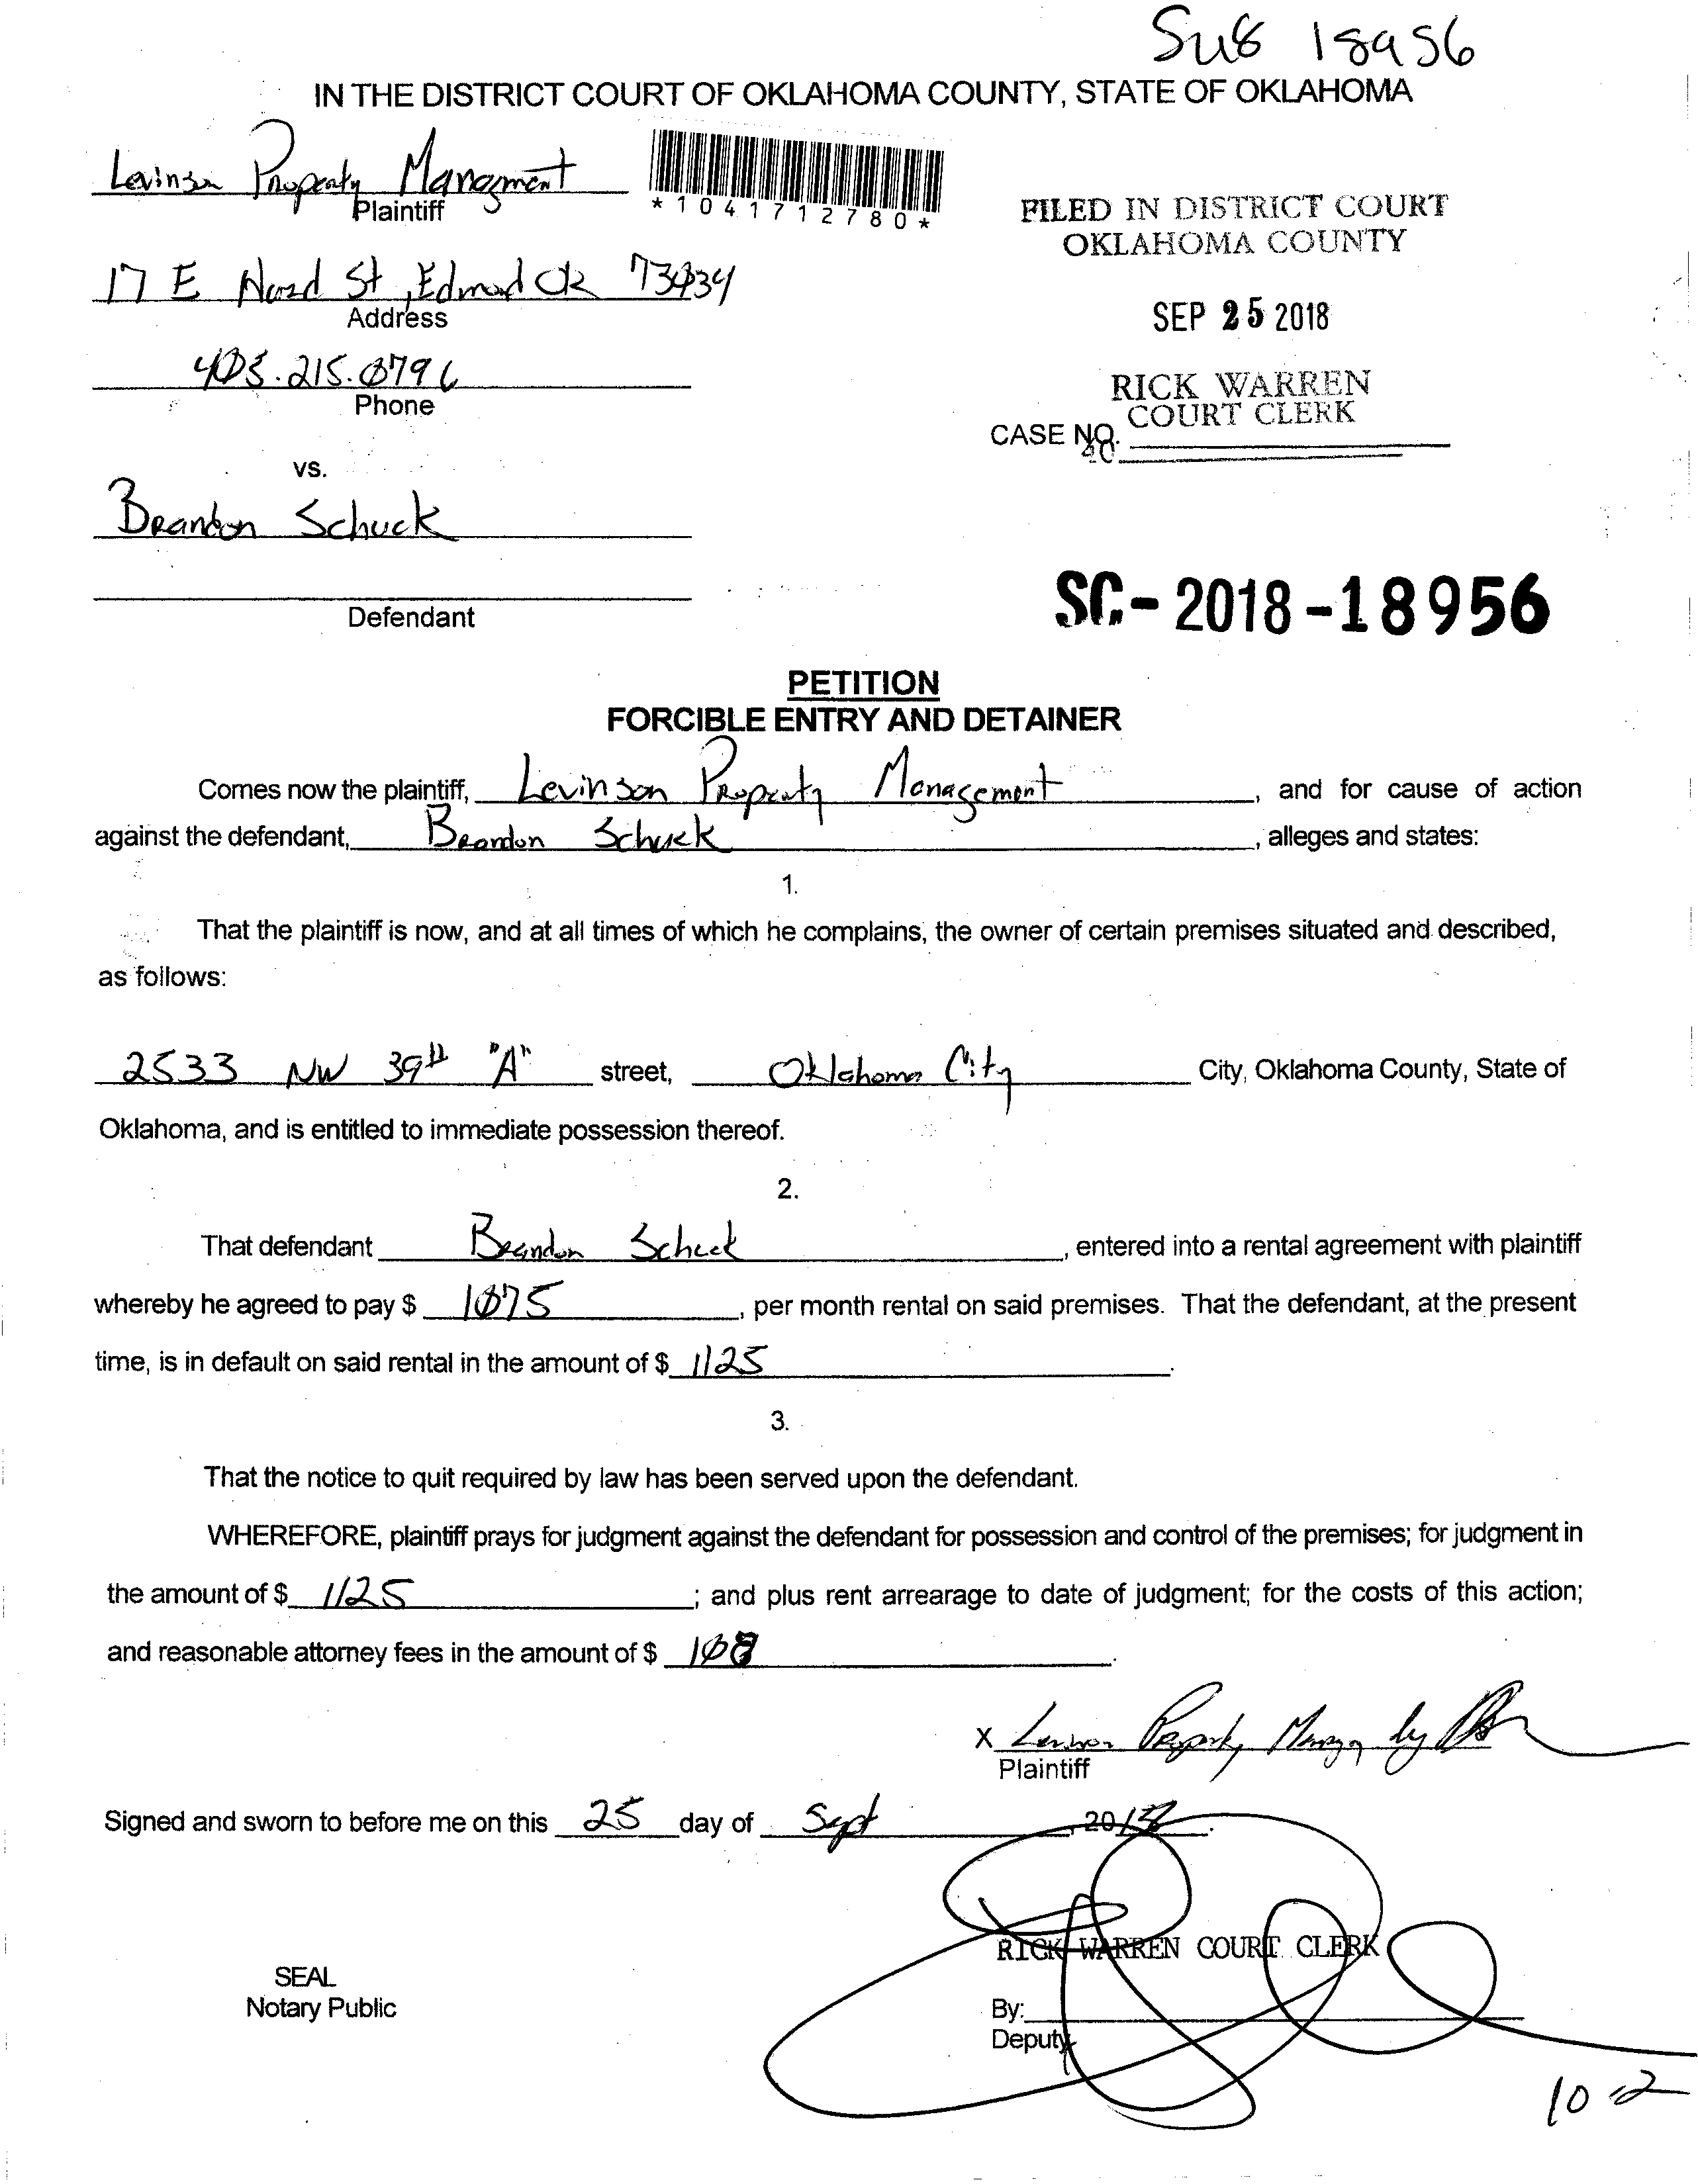 Su8 18956
IN THE DISTRICT COURT OF OKLAHOMA COUNTY, STATE OF OKLAHOMA
Levinson Property Managment
Plaintiff
*1041712780*
FILED IN DISTRICT COURT
OKLAHOMA COUNTY
17 E Hurd St, Edmond Ok 73034
Address
SEP 25 2018
405.215.0796
Phone
RICK WARREN
COURT CLERK
CASE NO.
vs.
Brandon Schuck
Defendant
SC-2018-18956
PETITION
FORCIBLE ENTRY AND DETAINER
Comes now the plaintiff, Levinson Property Management, and for cause of action
against the defendant, Brandon Schuck, alleges and states:
1.
That the plaintiff is now, and at all times of which he complains, the owner of certain premises situated and described,
as follows:
2533 NW 39th "A" street, Oklahoma City City, Oklahoma County, State of
Oklahoma, and is entitled to immediate possession thereof.
2.
That defendant Brandon Schuck, entered into a rental agreement with plaintiff
whereby he agreed to pay $ 1075, per month rental on said premises. That the defendant, at the present
time, is in default on said rental in the amount of $ 1125.
3.
That the notice to quit required by law has been served upon the defendant.
WHEREFORE, plaintiff prays for judgment against the defendant for possession and control of the premises; for judgment in
the amount of $ 1125; and plus rent arrearage to date of judgment; for the costs of this action;
and reasonable attorney fees in the amount of $
X Levinson Property Manag by
Plaintiff
Signed and sworn to before me on this 25 day of Sept, 2018.
RICK WARREN COURT CLERK
SEAL
Notary Public
By:
Deputy
10-2